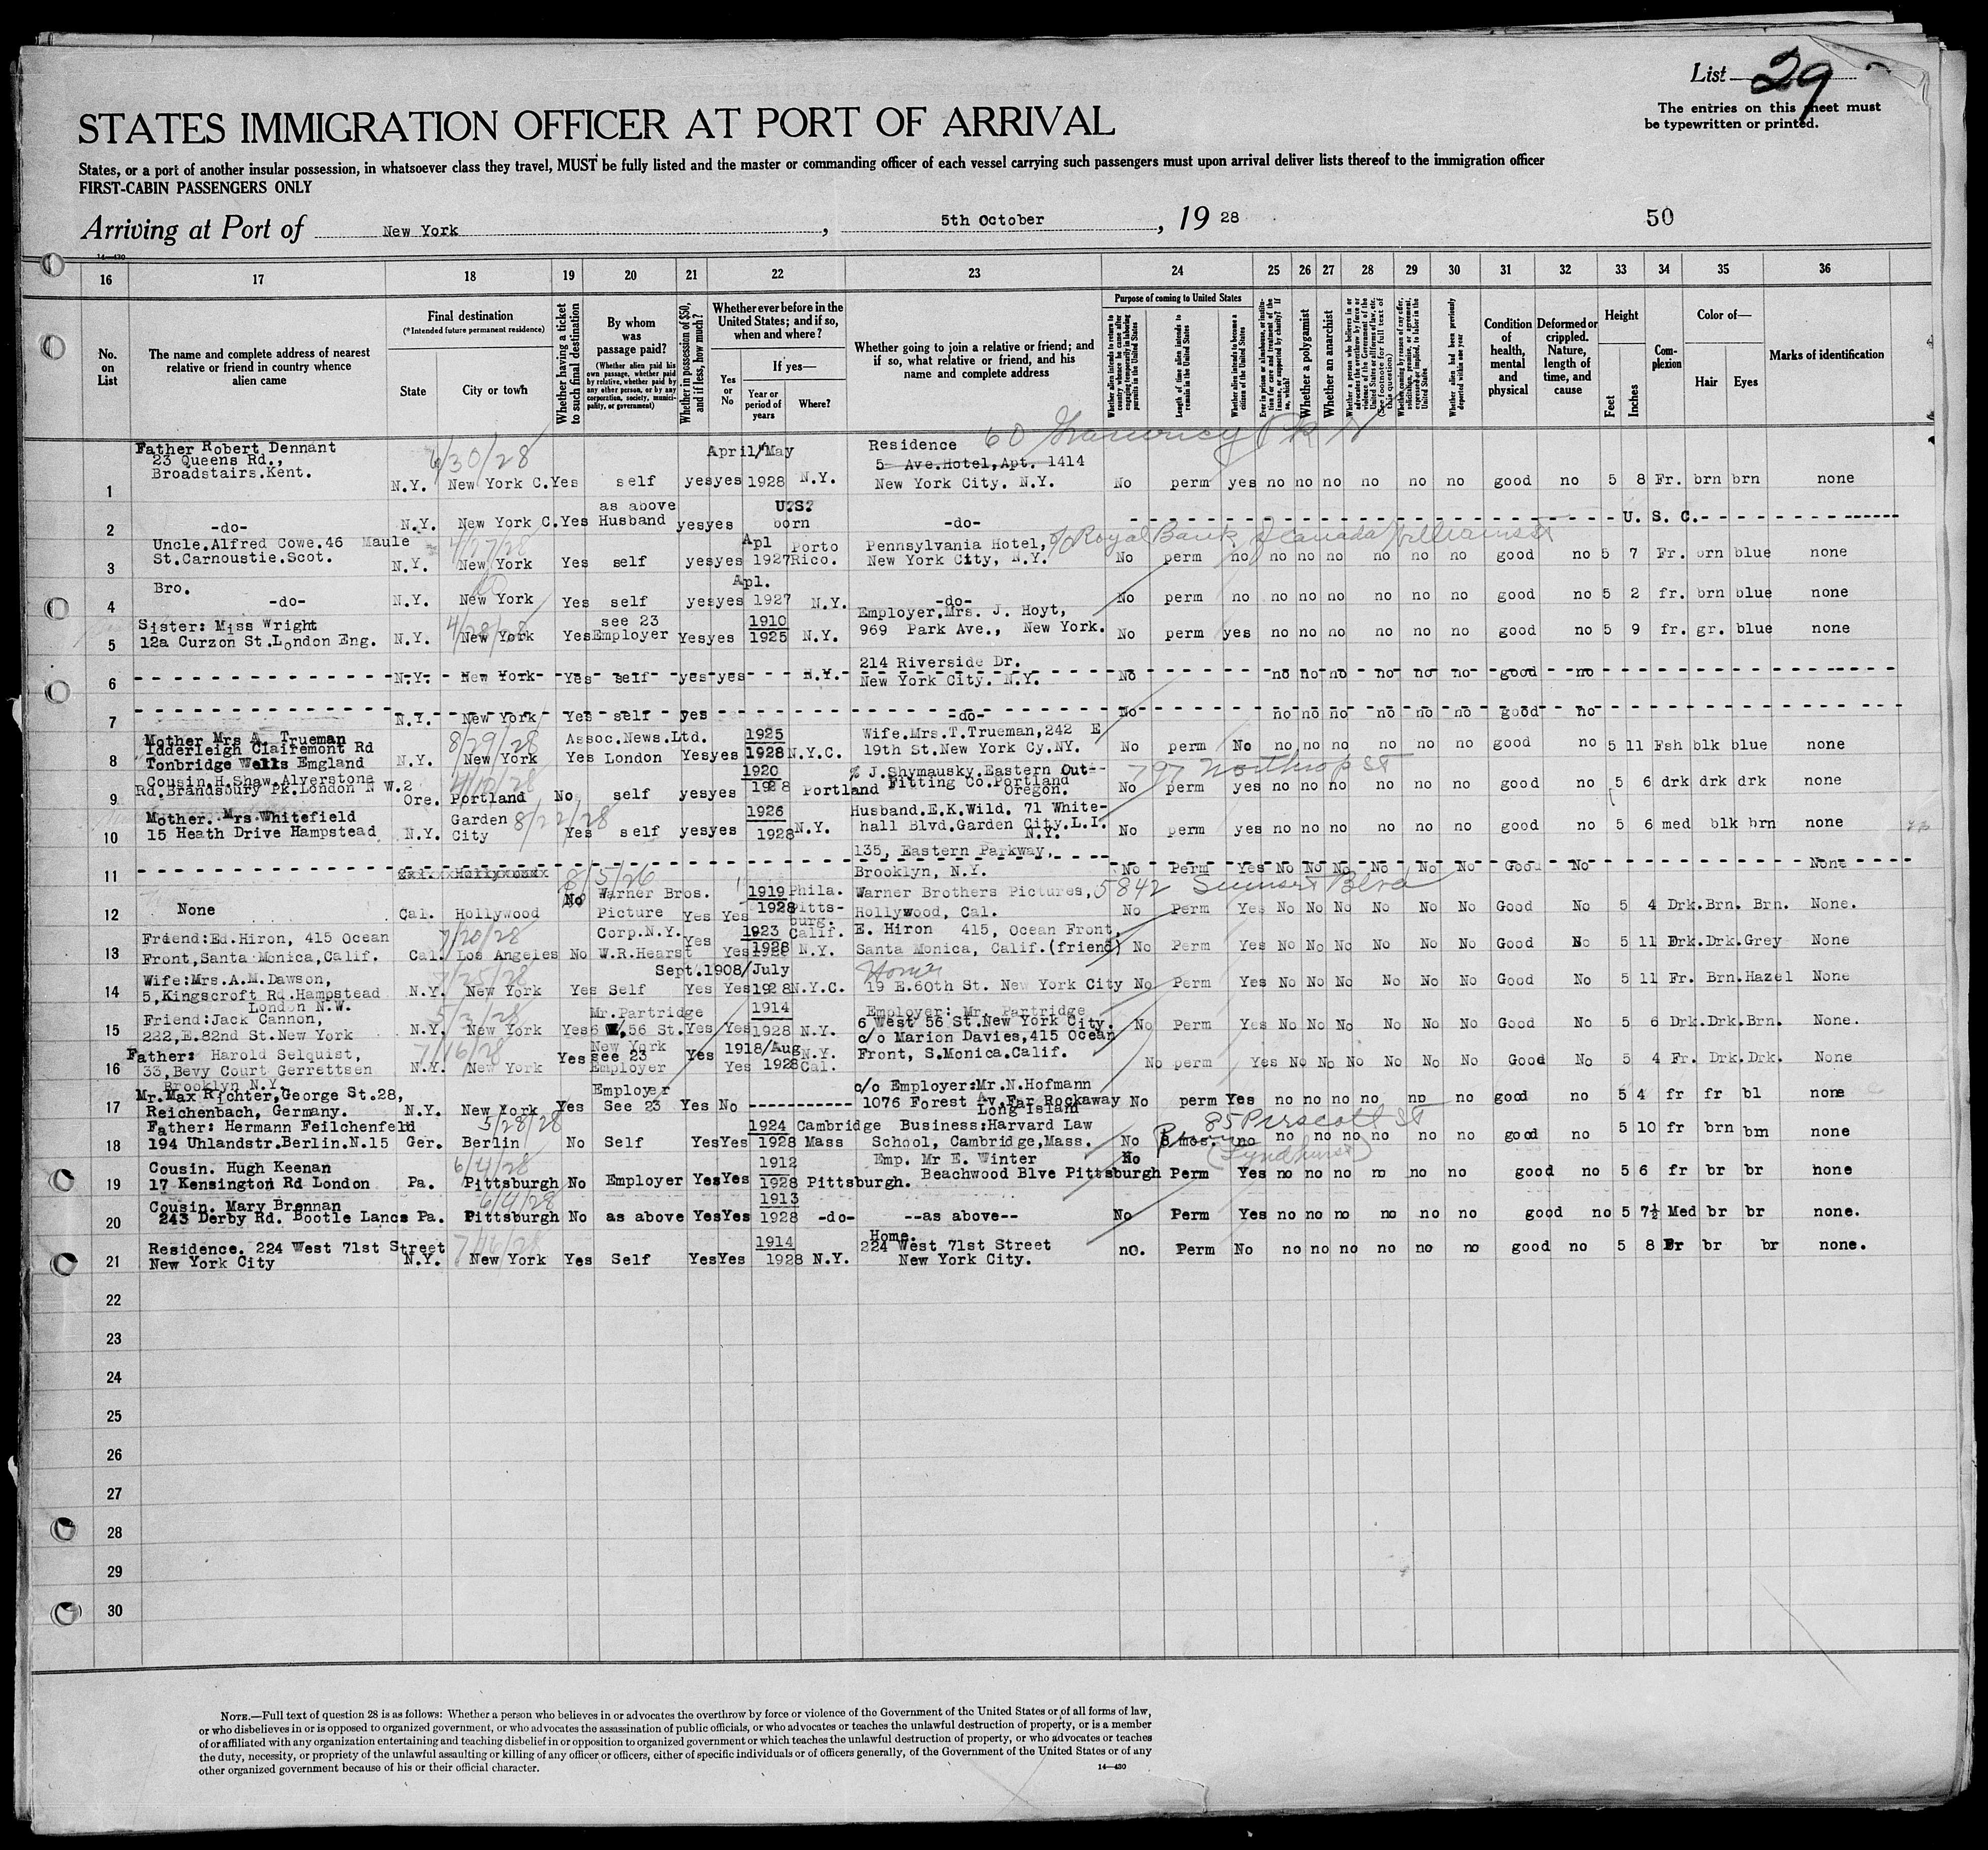 List 29
The entries on this sheet must
be typewritten or printed.
STATES IMMIGRATION OFFICER AT PORT OF ARRIVAL
States, or a port of another insular possession, in whatsoever class they travel, MUST be fully listed and the master or commanding officer of each vessel carrying such passengers must upon arrival deliver lists thereof to the immigration officer
FIRST-CABIN PASSENGERS ONLY
Arriving at Port of New York, 5th October, 19 28
50
14—430
16 17 18 19 20 21 22 23 24 25 26 27 28 29 30 31 32 33 34 35 36
No. on List
The name and complete address of nearest relative or friend in country whence alien came
Final destination
(*Intended future permanent residence)
State
City or town
Whether having a ticket to such final destination
By whom was passage paid?
(Whether alien paid his own passage, whether paid by relative, whether paid by any other person, or by any corporation, society, municipality, or government)
Whether in possession of $50, and if less, how much?
Whether ever before in the United States; and if so, when and where?
Yes or No
If yes—
Year or period of years
Where?
Whether going to join a relative or friend; and if so, what relative or friend, and his name and complete address
Purpose of coming to United States
Length of time alien intends to remain in the United States
Whether alien intends to become a citizen of the United States
Whether a polygamist
Whether an anarchist
Whether alien had been previously deported within one year
Condition of health, mental and physical
Deformed or crippled. Nature, length of time, and cause
Height
Feet
Inches
Complexion
Color of—
Hair
Eyes
Marks of identification
Father Robert Dennant April/May Residence 60 Gramercy Pk N
23 Queens Rd., 6/30/28 5 Ave.Hotel,Apt. 1414
Broadstairs.Kent.
1 N.Y. New York C.Yes self yes yes 1928 N.Y. New York City. N.Y. No perm yes no no no no no no good no 5 8 Fr. brn brn none
as above U.S.
2 -do- N.Y. New York C.Yes Husband yes yes born -do- U. S. C.
Uncle.Alfred Cowe.46 Maule 4/27/28 Apl Porto Pennsylvania Hotel, c/o Royal Bank of Canada William St
3 St.Carnoustie.Scot. N.Y. New York Yes self yes yes 1927 Rico. New York City, N.Y. No perm no no no no no no no good no 5 7 Fr. brn blue none
Bro. Apl.
4 -do- N.Y. New York Yes self yes yes 1927 N.Y. -do- No perm no no no no no no no good no 5 2 fr. brn blue none
Sister: Miss Wright 4/28/28 see 23 1910 Employer.Mrs. J. Hoyt,
5 12a Curzon St.London Eng. N.Y. New York Yes Employer Yes yes 1925 N.Y. 969 Park Ave., New York. No perm yes no no no no no no good no 5 9 fr. gr. blue none
214 Riverside Dr.
6 N.Y. New York Yes self yes yes N.Y. New York City. N.Y. No no no no no no no good no
7 N.Y. New York Yes self yes -do- No no no no no no no good no
Mother Mrs A. Trueman 8/29/28 Assoc.News.Ltd. 1925 Wife.Mrs.T.Trueman,242 E
Idderleigh Clairemont Rd
8 Tonbridge Wells Emgland N.Y. New York Yes London Yes yes 1928 N.Y.C. 19th St.New York Cy.NY. No perm No no no no no no no good no 5 11 Fsh blk blue none
Cousin.H.Shaw.Alverstone 4/12/28 1920 % J.Shymausky.Eastern Out- 797 Northrop St
9 Rd.Brandsbury Pk.London N W.2 Ore. Portland No self yes yes 1928 Portland Fitting Co.Portland Oregon. No perm yes no no no no no no good no 5 6 drk drk drk none
Mother. Mrs.Whitefield Garden 8/22/28 1926 Husband.E.K.Wild. 71 White-
10 15 Heath Drive Hampstead N.Y. City Yes self yes yes 1928 N.Y. hall Blvd.Garden City.L.I. N.Y. No perm yes no no no no no no good no 5 6 med blk brn none
135, Eastern Parkway,
11 Cal. Hollywood Brooklyn, N.Y. No Perm Yes No No No No No No Good No None
8/5/26 Warner Bros. 1919 Phila. Warner Brothers Pictures, 5842 Sunset Blvd
12 None Cal. Hollywood No Picture Yes Yes 1928 Pitts-burg. Hollywood, Cal. No Perm Yes No No No No No No Good No 5 4 Drk.Brn. Brn. None.
Friend:Ed.Hiron, 415 Ocean 7/20/28 Corp.N.Y. 1923 Calif. E. Hiron 415, Ocean Front,
13 Front,Santa Monica,Calif. Cal. Los Angeles No W.R.Hearst Yes Yes 1928 N.Y. Santa Monica, Calif.(friend) No Perm Yes No No No No No No Good No 5 11 Drk.Drk.Grey None
Wife:Mrs.A.M.Dawson, 7/25/28 Sept.1908/July Home
14 5,Kingscroft Rd.Hampstead N.Y. New York Yes Self Yes Yes 1928 N.Y.C. 19 E.60th St. New York City No Perm Yes No No No No No No Good No 5 11 Fr. Brn.Hazel None
London N.W.
Friend:Jack Cannon, 5/3/28 Mr.Partridge 1914 Employer: Mr. Partridge
15 222,E.82nd St.New York N.Y. New York Yes 6 W.56 St. Yes Yes 1928 N.Y. 6 West 56 St.New York City. No Perm Yes No No No No No No Good No 5 6 Drk.Drk.Brn. None.
Father: Harold Selquist, 7/16/28 New York 1918/Aug N.Y. c/o Marion Davies,415 Ocean
16 33,Bevy Court Gerrettsen N.Y. New York Yes see 23 Employer Yes Yes 1928 Cal. Front, S.Monica.Calif. No perm Yes No No No No No No Good No 5 4 Fr. Drk.Drk. None
Brooklyn N.Y.
Mr.Max Richter,George St.28, Employer c/o Employer:Mr.N.Hofmann
17 Reichenbach, Germany. N.Y. New York Yes See 23 Yes No 1076 Forest Av.Far Rockaway Long Island No perm Yes no no no no no no good no 5 4 fr fr bl none
Father: Hermann Feilchenfeld 5/28/28 1924 Cambridge Business:Harvard Law 85 Prescott St
18 194 Uhlandstr.Berlin.N.15 Ger. Berlin No Self Yes Yes 1928 Mass School, Cambridge,Mass. No 8 mos. no no no no no no no good no 5 10 fr brn brn none
(Lyndhurst)
Cousin. Hugh Keenan 6/4/28 1912 Emp. Mr E. Winter No
19 17 Kensington Rd London Pa. Pittsburgh No Employer Yes Yes 1928 Pittsburgh. Beachwood Blve Pittsburgh Perm Yes no no no no no no good no 5 6 fr br br none
Cousin. Mary Brennan 6/4/28 1913
20 243 Derby Rd. Bootle Lancs Pa. Pittsburgh No as above Yes Yes 1928 -do- --as above-- No Perm Yes no no no no no no good no 5 7½ Med br br none.
Residence. 224 West 71st Street 7/16/28 1914 Home.
21 New York City N.Y. New York Yes Self Yes Yes 1928 N.Y. 224 West 71st Street New York City. no. Perm No no no no no no no good no 5 8 Fr br br none.
22
23
24
25
26
27
28
29
30
NOTE.—Full text of question 28 is as follows: Whether a person who believes in or advocates the overthrow by force or violence of the Government of the United States or of all forms of law,
or who disbelieves in or is opposed to organized government, or who advocates the assassination of public officials, or who advocates or teaches the unlawful destruction of property, or is a member
of or affiliated with any organization entertaining and teaching disbelief in or opposition to organized government or which teaches the unlawful destruction of property, or who advocates or teaches
the duty, necessity, or propriety of the unlawful assaulting or killing of any officer or officers, either of specific individuals or of officers generally, of the Government of the United States or of any
other organized government because of his or their official character.
14—430